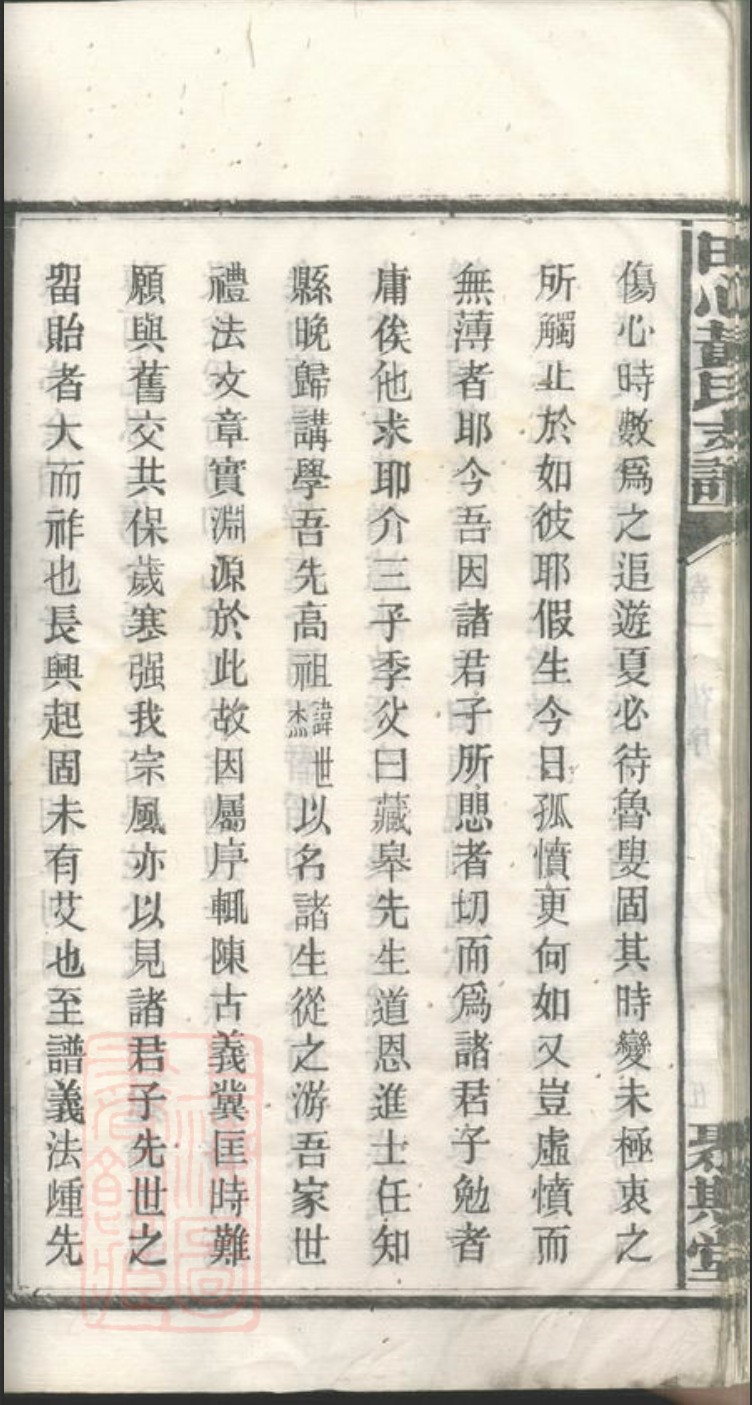 黃氏支譜
聚斯堂
傷心時數爲之追遊夏必待魯叟固其時變未極衷之
所觸止於如彼耶假生今日孤憤更何如又豈虛憤而
無薄者耶今吾因諸君子所悲者切而爲諸君子勉者
庸俟他求耶介三子季父曰藏皋先生道恩進士任知
縣晚歸講學吾先高祖諱世杰以名諸生從之游吾家世
禮法文章實淵源於此故因屬序輒陳古義冀匡時難
願與舊交共保歲寒强我宗風亦以見諸君子先世之
畱貽者大而祚也長興起固未有艾也至譜義法踵先